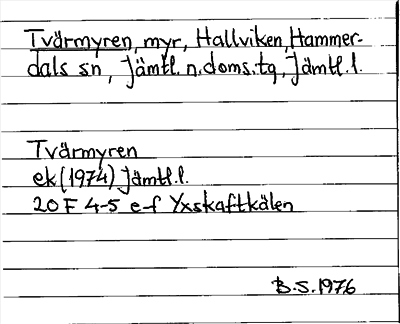 Tvärmyren, myr, Hallviken, Hammer-
dals sn, Jämtl. n. doms. tg, Jämtl. l.
Tvärmyren
ek (1974) Jämtl. l.
20 F 4-5 e-f Yxskaftkälen
B.S. 1976